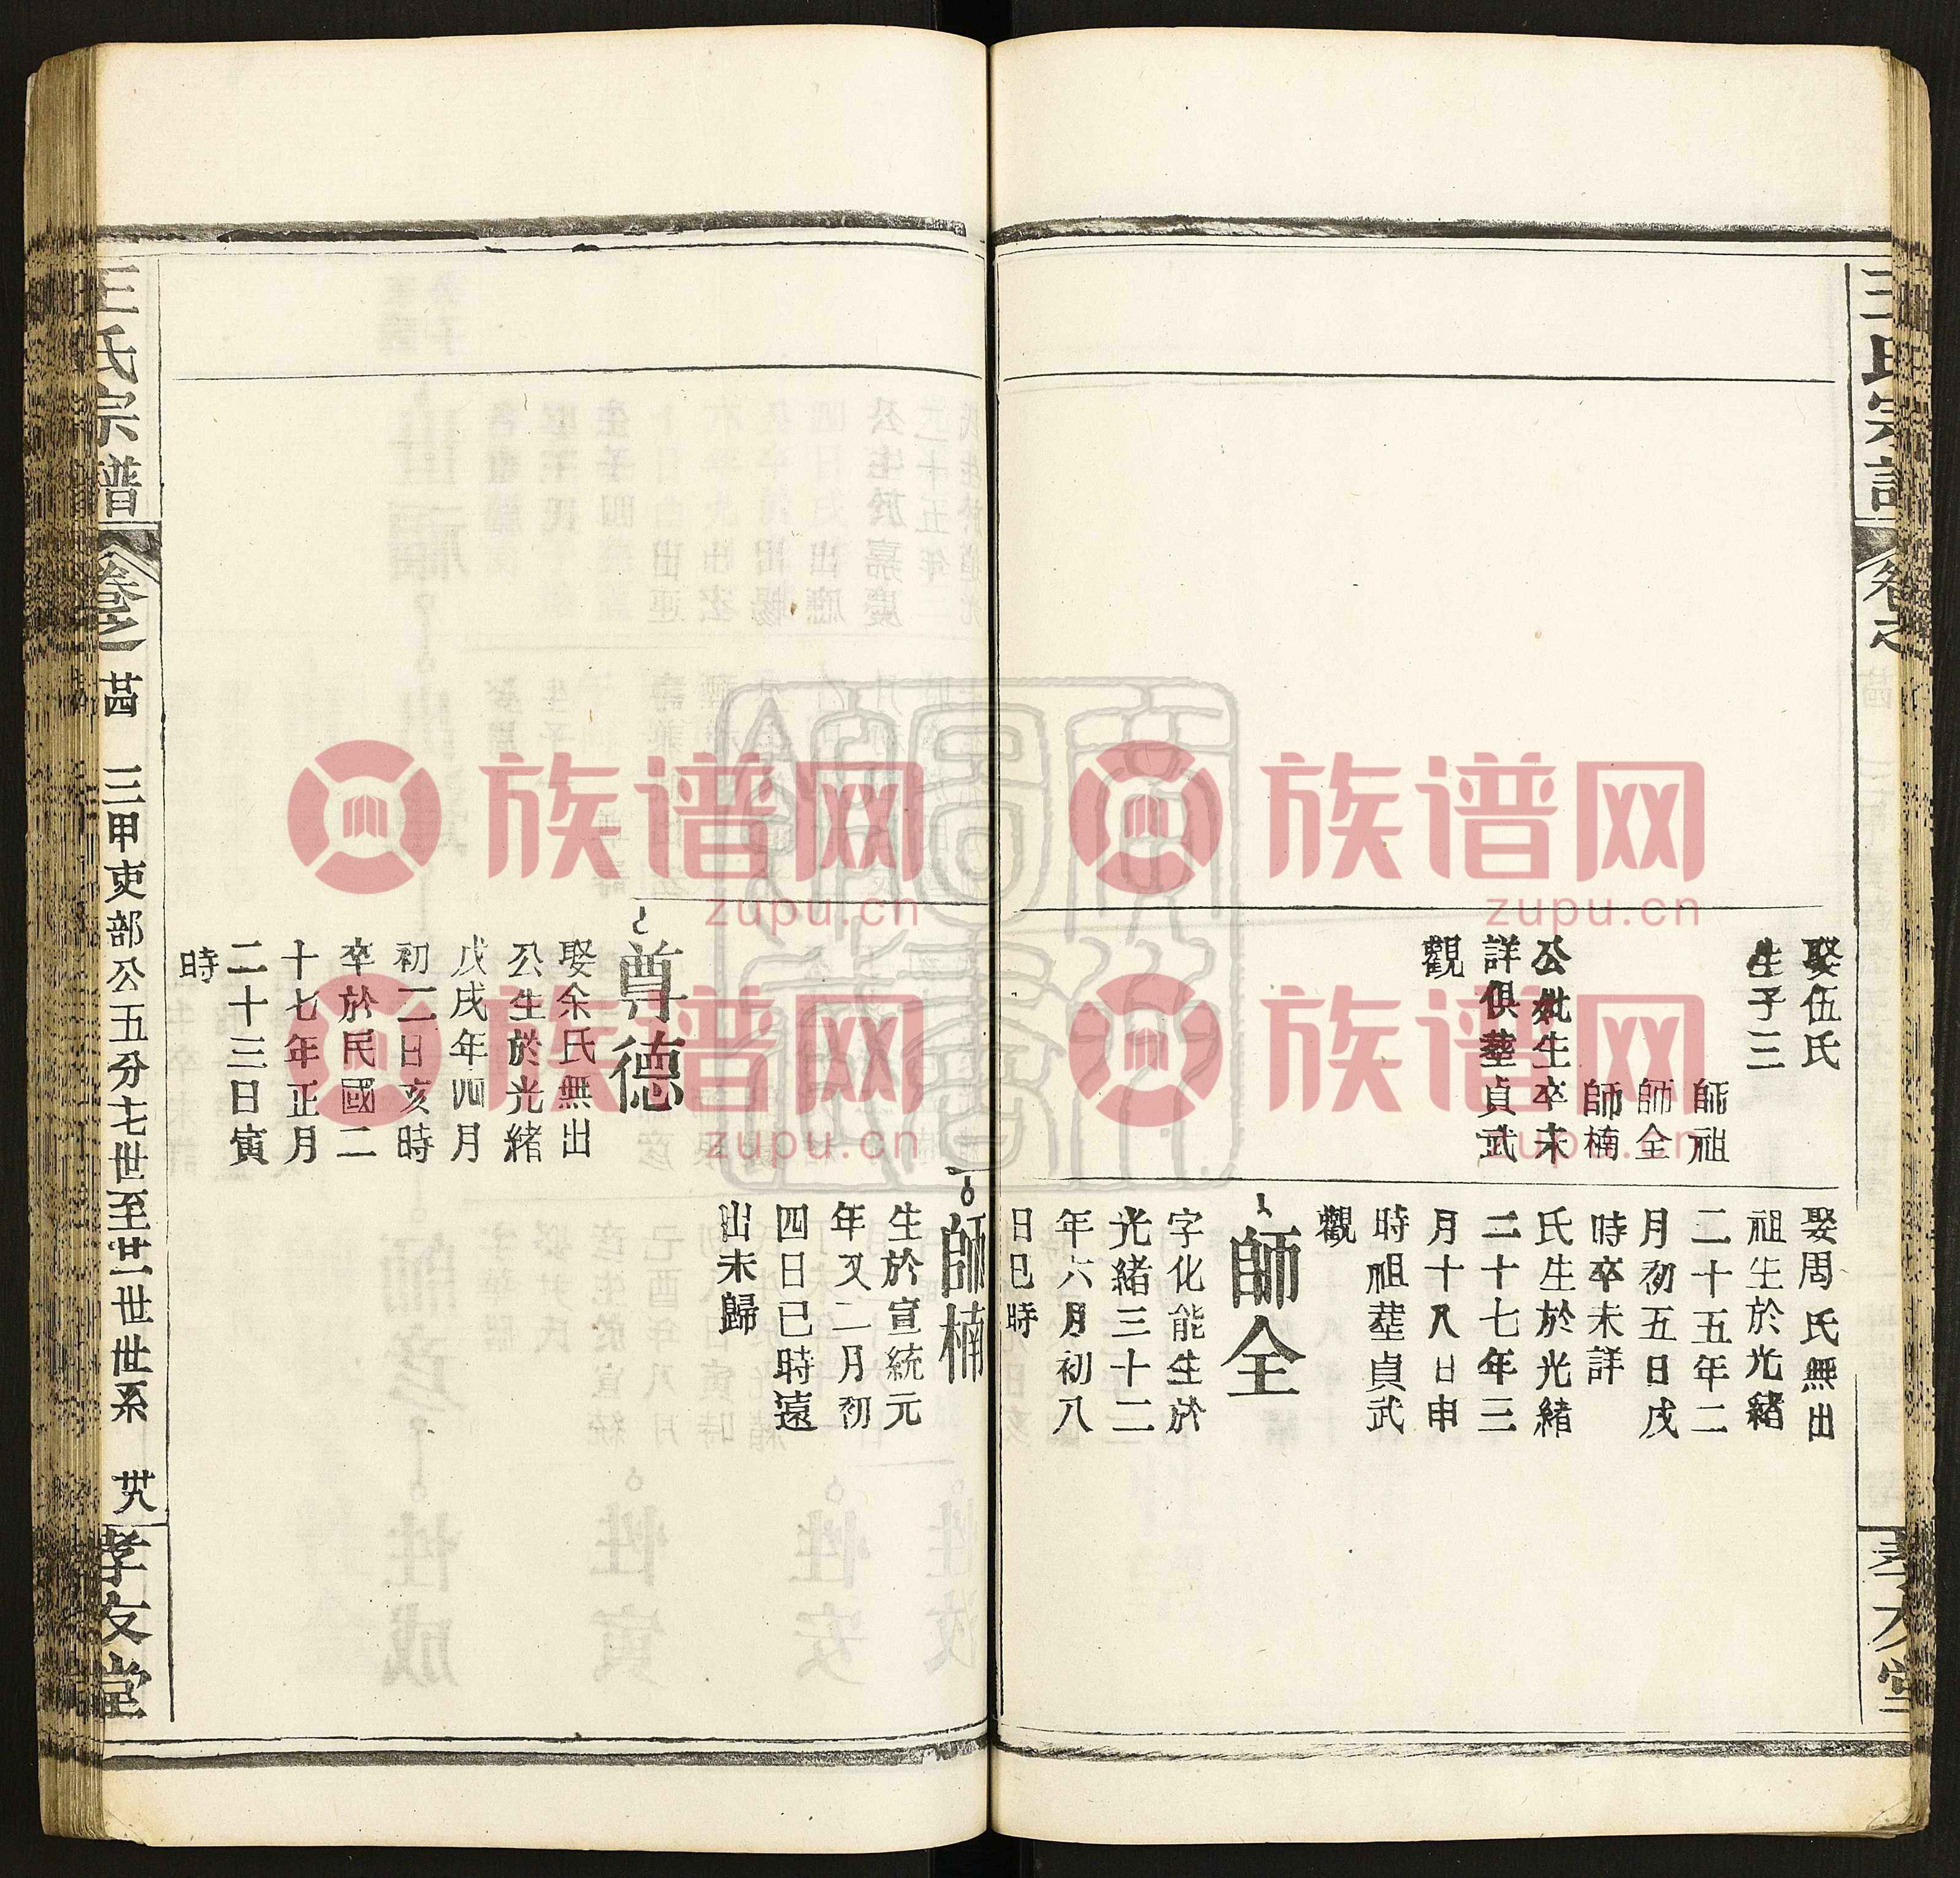 王氏宗譜
卷之
娶伍氏
生子三
師祖
師全
師楠
公妣生卒未
詳俱塟貞武
觀
娶周氏無出
祖生於光緒
二十五年二
月初五日戌
時卒未詳
氏生於光緒
二十七年三
月十八日申
時祖塟貞武
觀
師全
字化能生於
光緒三十二
年六月初八
日巳時
師楠
生於宣統元
年又二月初
四日巳時遠
出未歸
尊德
娶余氏無出
公生於光緒
戊戌年四月
初二日亥時
卒於民國二
十七年正月
二十三日寅
時
王氏宗譜
卷之
三甲吏部公五分七世至廿一世世系
孝友堂
族谱网
zupu.cn
族谱网
zupu.cn
族谱网
zupu.cn
族谱网
zupu.cn